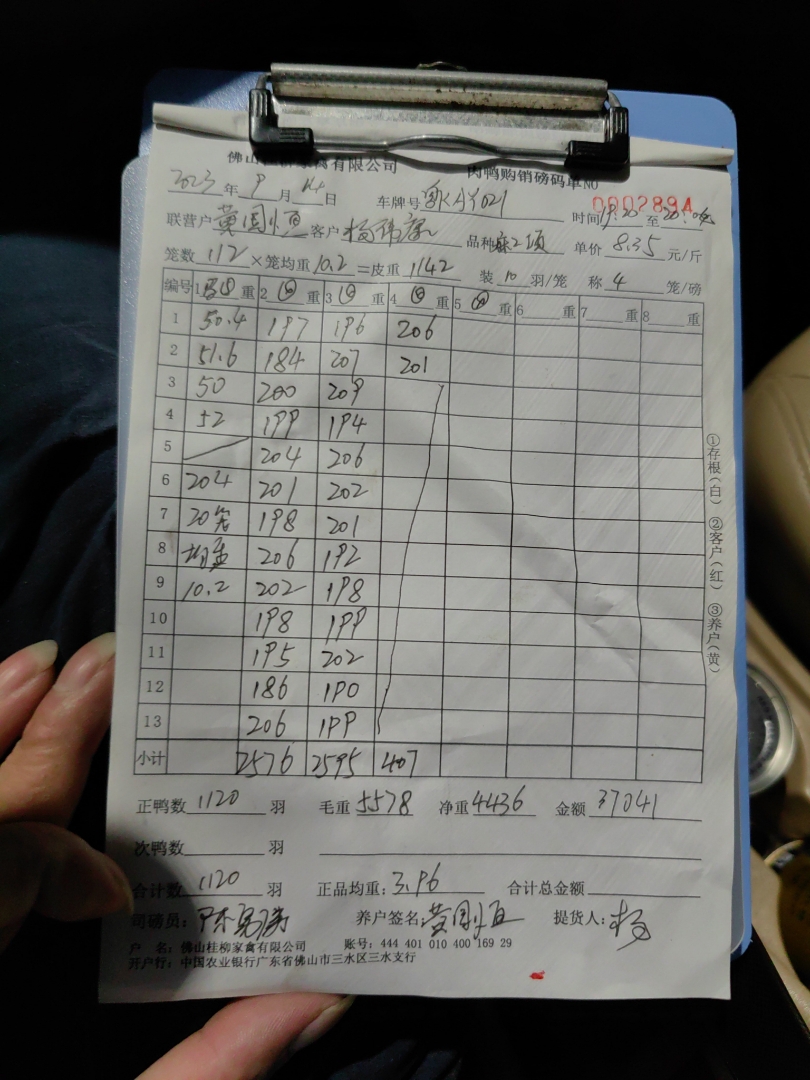 佛山桂柳家禽有限公司 肉鸭购销磅码单NO
0002894
2023年9月14日 车牌号 时间19:20至20:
联营户黄国恒 客户 品种麻2项 单价8.35元/斤
笼数112×笼均重10.2=皮重1142 装10羽/笼 称4笼/磅
编号 1 重 2 重 3 重 4 重 5 重 6 重 7 重 8 重
1 50.4 197 196 206
2 51.6 184 207 201
3 50 200 209
4 52 199 194
5 204 206
6 204 201 202
7 20笼 198 201
8 均重 206 192
9 10.2 202 198
10 198 199
11 195 202
12 186 190
13 206 199
小计 2576 2595 407
①存根(白) ②客户(红) ③养户(黄)
正鸭数1120羽 毛重5578 净重4436 金额37041
次鸭数 羽
合计数1120羽 正品均重:3.96 合计总金额
司磅员: 养户签名:黄国恒 提货人:杨
户 名:佛山桂柳家禽有限公司 账号:444 401 010 400 169 29
开户行:中国农业银行广东省佛山市三水区三水支行